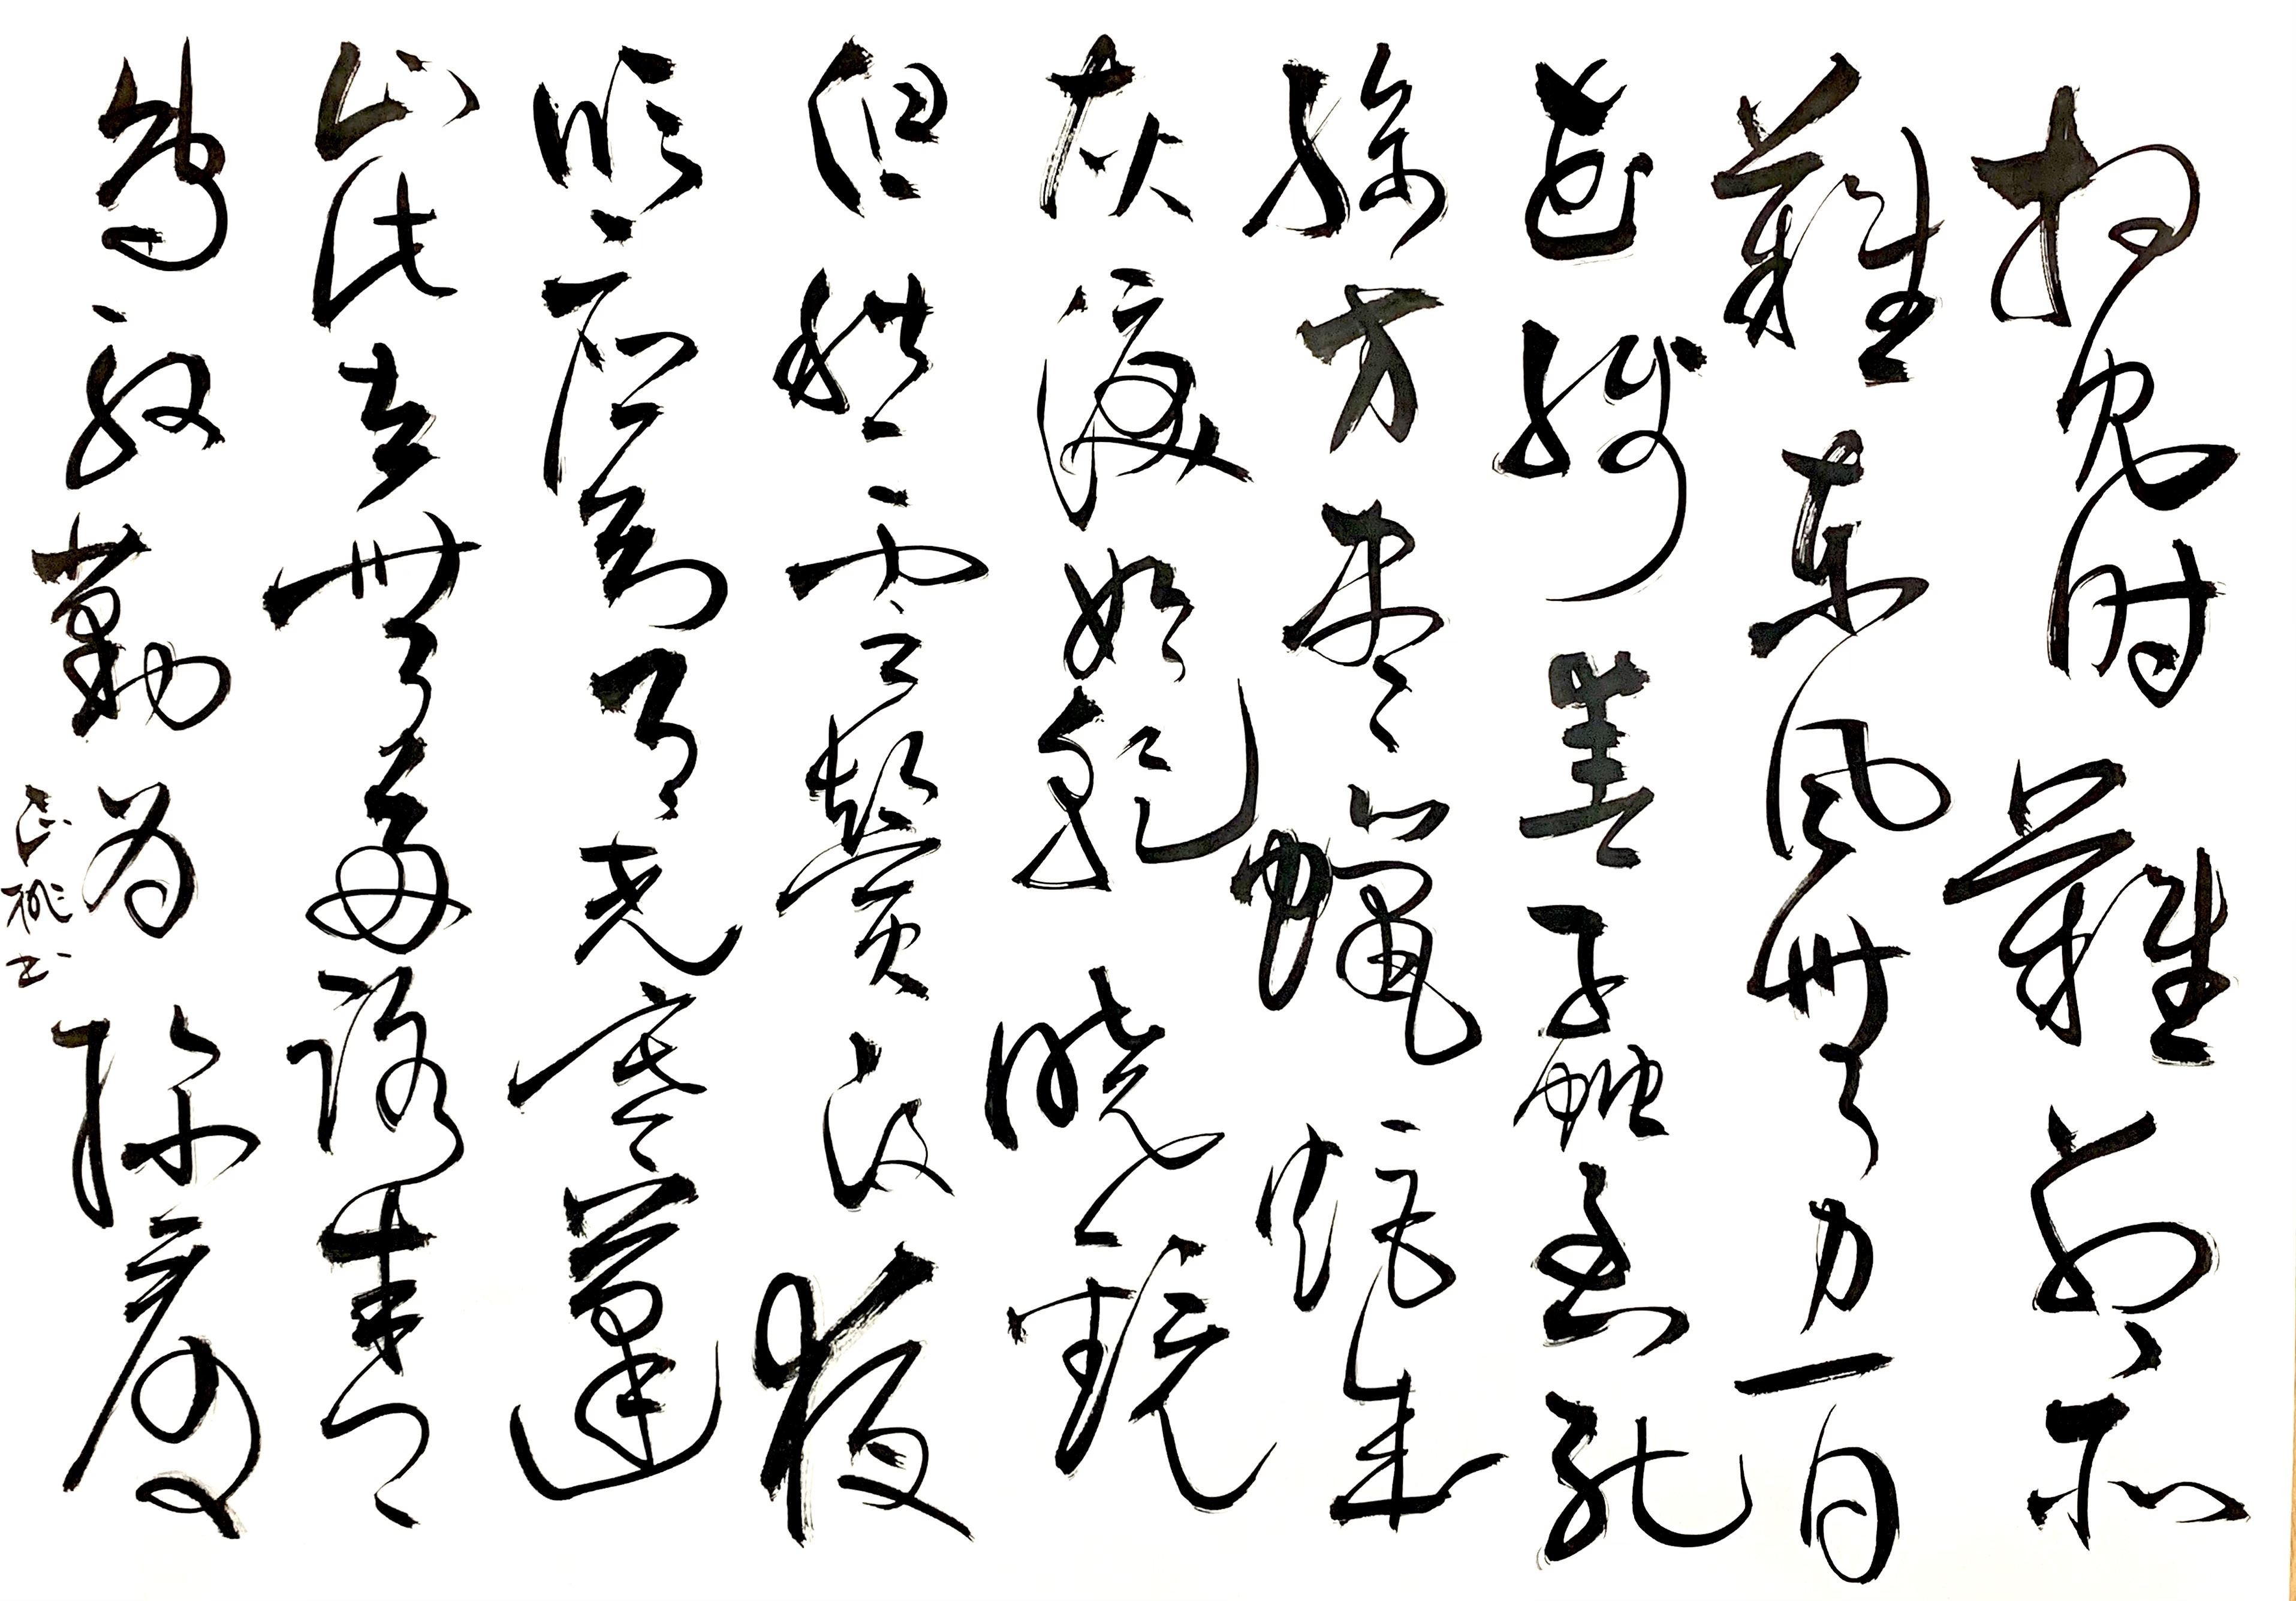 相見時難別亦
難東風無力百
花殘春蠶到死
絲方盡蠟炬成
灰淚始乾曉鏡
但愁雲鬢改夜
吟應覺月光寒蓬
山此去無多路青
鳥殷勤為探看